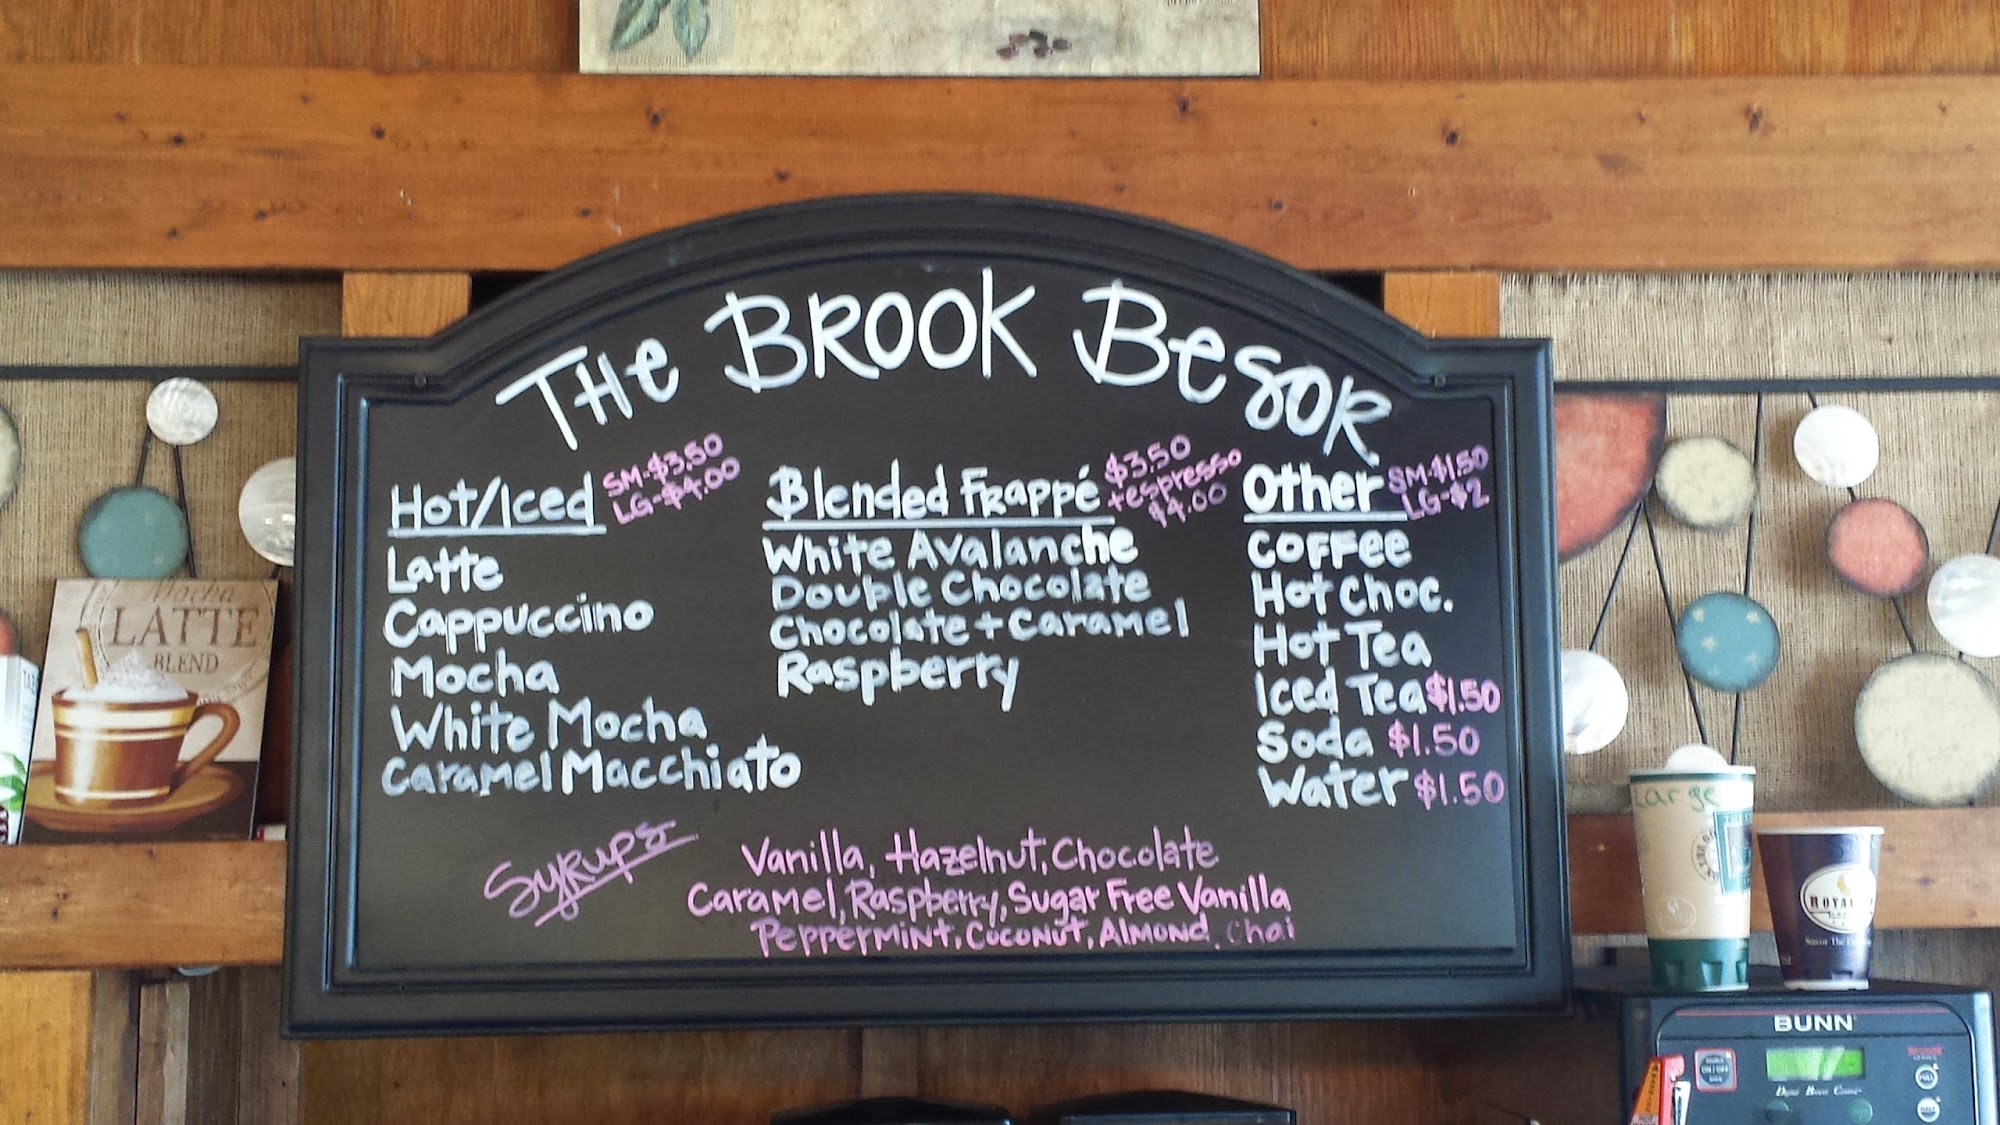 THe BROOK BeSOR
Hot/Iced SM-$3.50
LG-$4.00
Latte
Cappuccino
Mocha
White Mocha
Caramel Macchiato
Blended FRappé $3.50
+espresso
$4.00
White Avalanche
Double Chocolate
Chocolate + Caramel
Raspberry
Other SM-$1.50
LG-$2
COFFee
Hot Choc.
Hot Tea
Iced Tea $1.50
Soda $1.50
Water $1.50
SyRups
Vanilla, Hazelnut, Chocolate
Caramel, Raspberry, Sugar Free Vanilla
PEPPERMINT, COCONUT, ALMOND, Chai
Mocha
LATTE
BLEND
Large
BUNN
ON / OFF